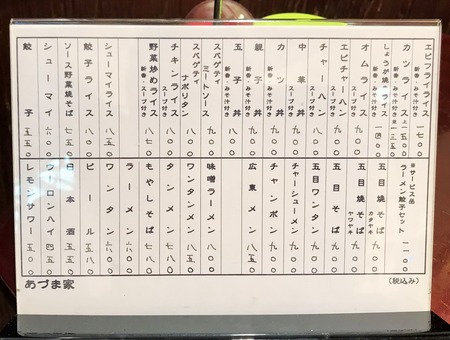 エビフライライス 一七〇〇
新香・みそ汁付き
カツライス 上一五〇〇
新香・みそ汁付き
しょうが焼きライス 一四〇〇
新香・みそ汁付き
オムライス 九〇〇
スープ付き
エビチャーハン 九〇〇
スープ付き
チャーハン 八〇〇
スープ付き
中華丼 九〇〇
スープ付き
カツ丼 九〇〇
新香・みそ汁付き
親子丼 九〇〇
新香・みそ汁付き
玉子丼 八〇〇
新香・みそ汁付き
スパゲティ
ミートソース 九〇〇
スパゲティ
ナポリタン 八〇〇
チキンライス 八〇〇
スープ付き
野菜炒めライス 八七〇
新香・スープ付き
シューマイライス 八五〇
餃子ライス 八〇〇
ソース野菜焼そば 七五〇
シューマイ 六〇〇
餃子 五五〇
※サービス品
ラーメン餃子セット 一一〇〇
五目焼そば 九〇〇
カタヤキ
五目焼そば 九〇〇
ヤワヤキ
五目そば 九〇〇
五目ワンタン 九〇〇
チャーシューメン 九〇〇
チャンポン 九〇〇
広東メン 八五〇
味噌ラーメン 八〇〇
ワンタンメン 八五〇
タンメン 七八〇
もやしそば 七八〇
ラーメン 六八〇
ワンタン 六八〇
ビール 五八〇
日本酒 五五〇
ウーロンハイ 四五〇
レモンサワー 五〇〇
(税込み)
あづま家